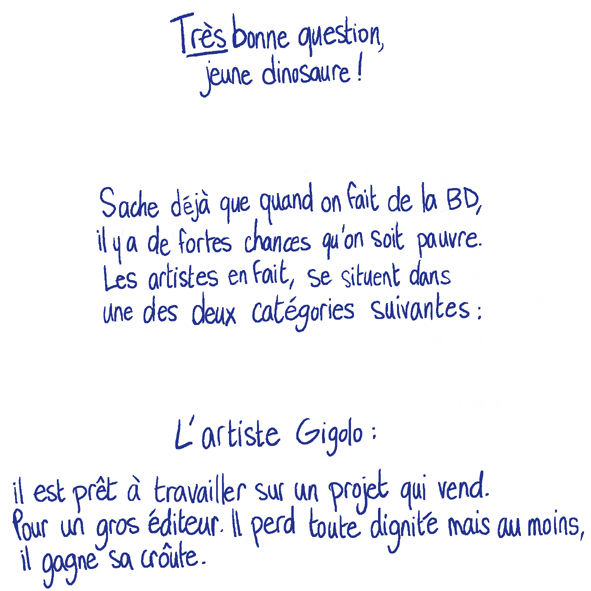 Très bonne question,
jeune dinosaure !
Sache déjà que quand on fait de la BD,
il y a de fortes chances qu'on soit pauvre.
Les artistes en fait, se situent dans
une des deux catégories suivantes :
L'artiste Gigolo :
il est prêt à travailler sur un projet qui vend.
Pour un gros éditeur. Il perd toute dignité mais au moins,
il gagne sa croûte.